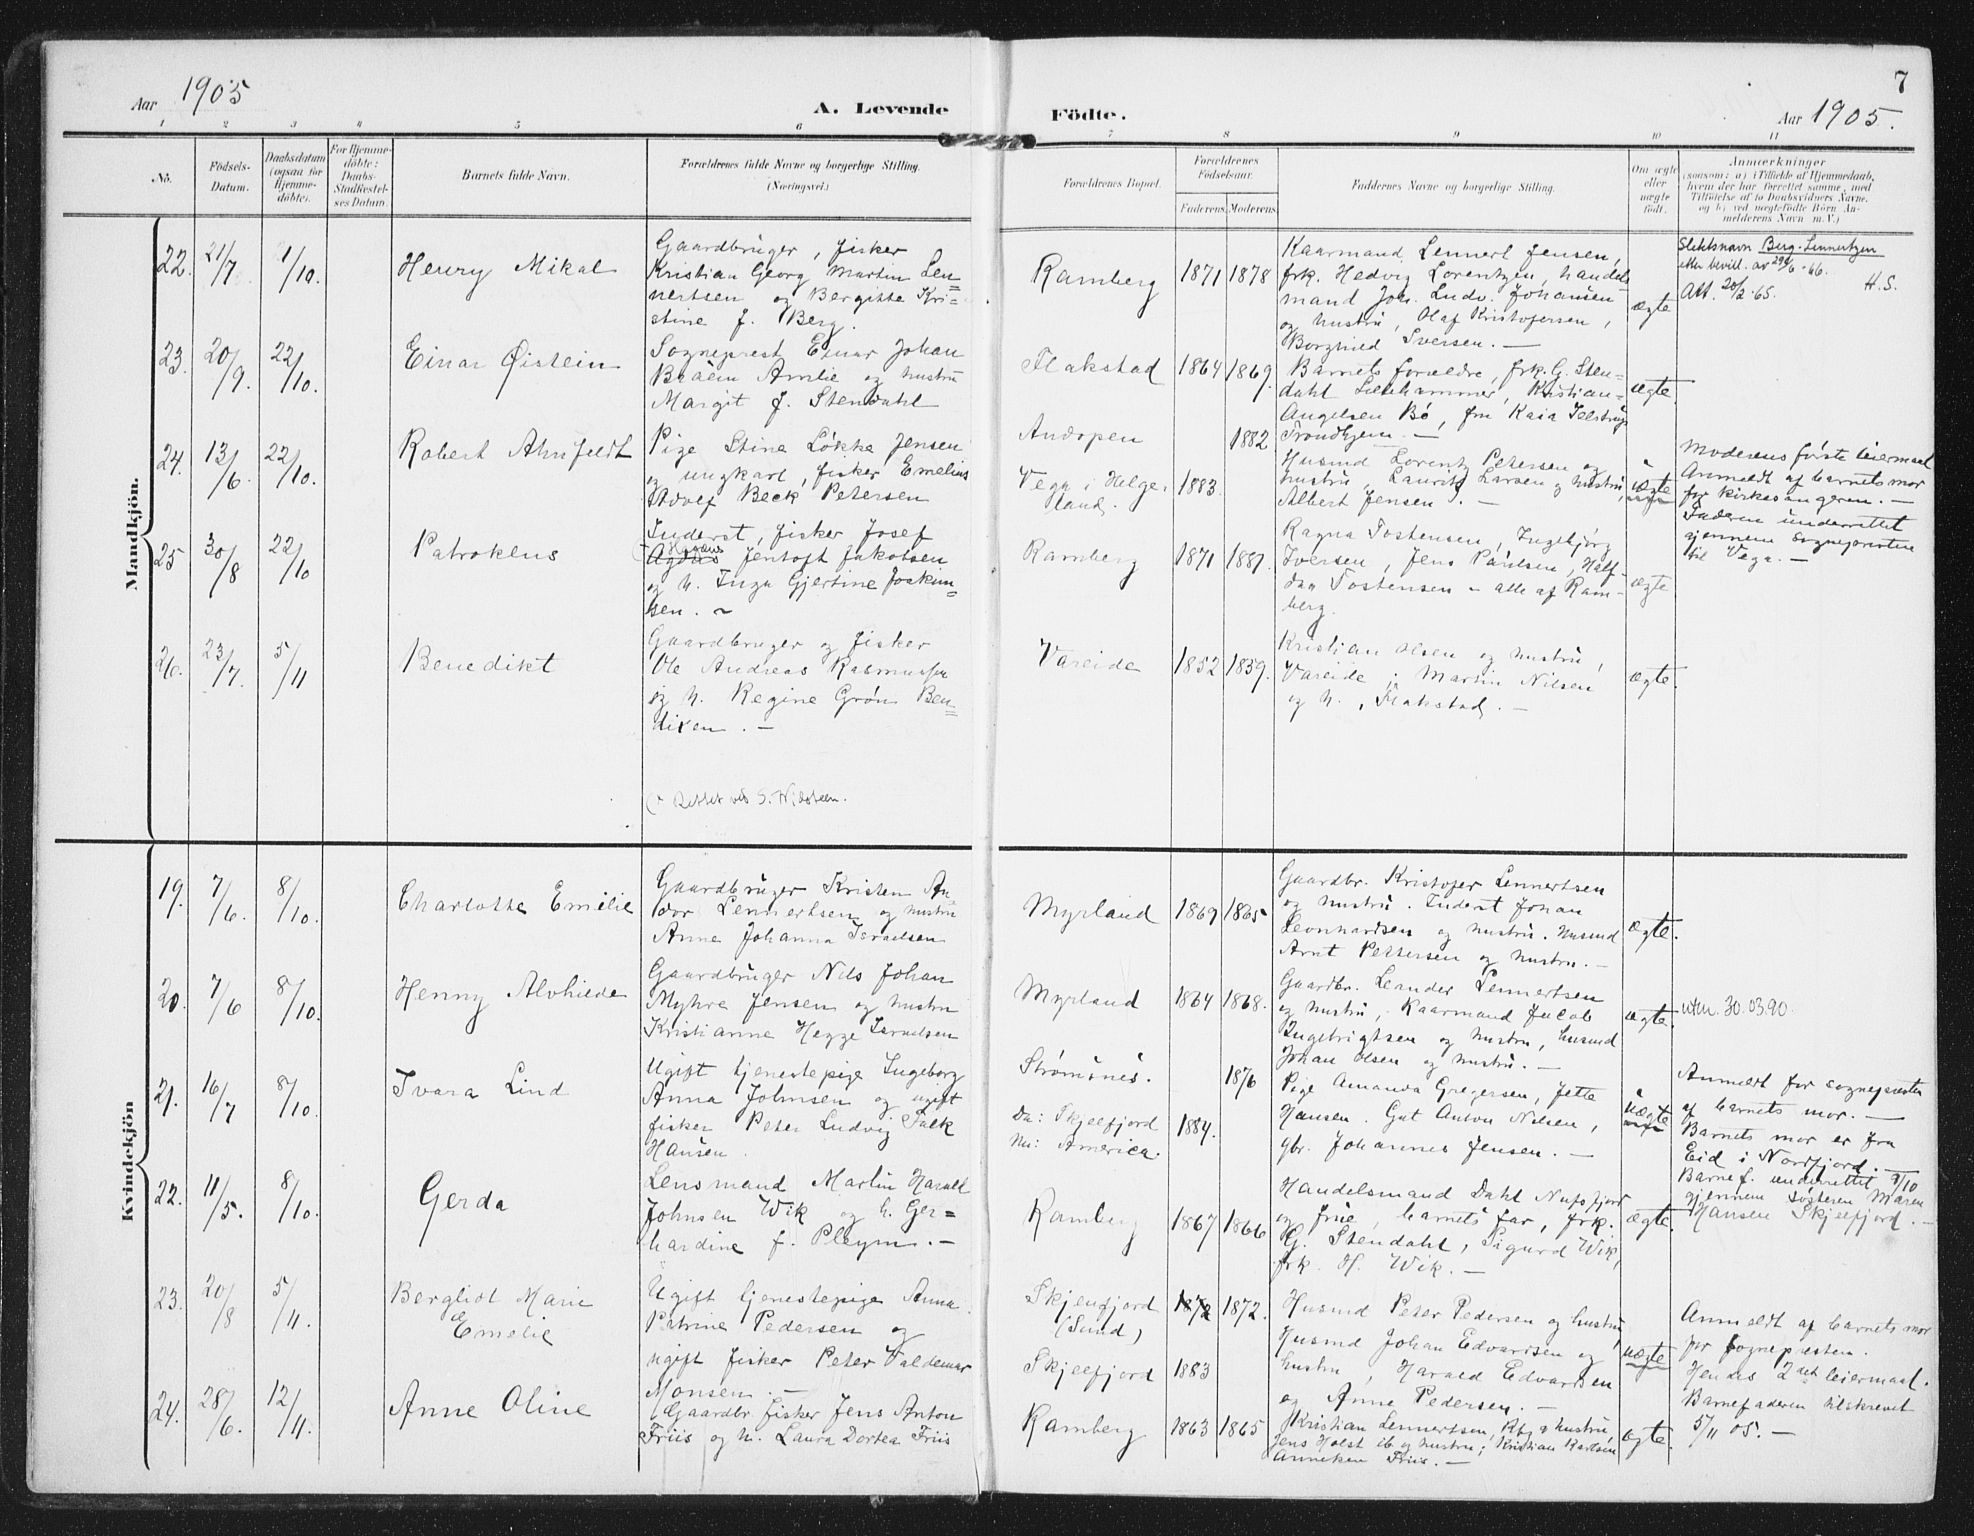 Aar 1905
A. Levende
Födte.
7
Aar 1905.
1 2 3 4 5 6 7 8 9 10 11
No.
Födsels-Datum.
Daabsdatum (ogsaa for Hjemme-döbte).
For Hjemme-döbte: Daabs-Stadfæstel-ses Datum.
Barnets fulde Navn.
Forældrenes fulde Navne og borgerlige Stilling.
(Næringsvei.)
Forældrenes Bopæl.
Forældrenes Födselsaar.
Faderens. Moderens.
Faddernes Navne og borgerlige Stilling.
Om ægte eller uægte födt.
Anmærkninger
(saasom: a) i Tilfælde af Hjemmedaab,
hvem der har forrettet samme, med
Tilföielse af to Daabsvidners Navne,
og b) ved uægtefödte Börn An-
melderens Navn m. V.)
Mandkjön.
22. 21/7 1/10. Henry Mikal
Gaardbruger, fisker
Kristian Georg Martin Len=
nertsen og Bergitte Kri=
stine f. Berg.
Ramberg 1871 1878
Kaarmand Lennert Jensen,
frk. Hedvig Lorentzen, handels
mand Joh. Ludv. Johansen
og hustru, Olaf Kristofersen,
Borghild Iversen. —
ægte
Slektsnavn Berg-Lennertzen
etter bevill. av 29/6-66.
Att. 20/2-65. H.S.
23. 20/9. 22/10. Einar Øistein
Sogneprest Einar Johan
Bråein Amlie og hustru
Margit f. Stendahl
Flakstad 1864 1869.
Barnets forældre, frk. G. Sten=
dahl Lillehammer, Kristian
Angelsen Bö, fru Kaia Jelstrup
Trondhjem. —
ægte
24. 13/6. 22/10. Robert Ahnfeldt
Pige Stine Lökke Jensen
og ungkarl, fisker Emelius
Adolf Beck Petersen
Andopen 1882
Vega i Helge-
land. 1883
Husmd Lorentz Petersen og
hustru, Laurits Larsen og hustru,
Albert Jensen S. —
uægte
Moderens første leiermaal
Anmeldt af barnets mor
for kirkesangeren. —
Faderen underrettet
gjennem sognepresten
til Vega. —
25 30/8 22/10 Patroklus
Inderst, fisker Josef
Agdus Jentoft Jakobsen
og h. Inga Gjertine Joakim=
sen. ~
Ramberg 1871 1881.
Ragna Tostensen, Ingebjørg
Iversen, Jens Paulsen, Half-
dan Tostensen - alle af Ram-
berg.
ægte
26. 23/7. 5/11 Benedikt
Gaardbruger og fisker
Ole Andreas Rasmussen
og h. Regine Grön Ben=
dixen. —
Vareide 1852 1859.
Kristian Olsen og hustru,
Vareide, Martin Nilsen
og h., Flakstad. —
ægte.
Rettet ved S. Widsteen.
Kvindekjön
19. 7/6. 8/10. Charlotte Emelie
Gaardbruger Kristen An
dor Lennertsen og hustru
Anne Johanna Israelsen
Myrland 1869 1865
Gaardbr. Kristofer Lennertsen
og hustru. Inderst Johan
Leonhardsen og hustru. Husmd
Arnt Pettersen og hustru. —
ægte.
20. 7/6 8/10. Henny Alvhilde
Gaardbruger Nils Johan
Myhre Jensen og hustru
Kristianne Hegge Israelsen
Myrland 1864 1868.
Gaardbr. Leander Lennertsen
og hustru, Kaarmand Jacob
Ingebrigtsen og hustru, husmd
Johan Olsen og hustru. —
ægte.
utm. 30.03.90.
21. 16/7 8/10. Ivara Lind
Ugift tjenestepige Ingeborg
Anna Johnsen og ugift
fisker Peter Ludvig Falk
Hansen.
Strömsnes. 1876
Da: Skjelfjord 1884.
Nu: America.
Pige Amanda Gregersen, Jette
Hansen. Gut Anton Nilsen,
gbr. Johannes Jensen. —
uægte
Anmeldt for sognepresten
af barnets mor. —
Barnets mor er fra
Eid i Nordfjord. —
Barnef. underrettet 8/10
gjennem søsteren Maren
Hansen Skjelfjord. —
22. 11/5. 8/10. Gerda
Lensmand Martin Harald
Johnsen Wik og h. Ger=
hardine f. Pleym. —
Ramberg 1867 1866
Handelsmand Dahl Nufsfjord
og frue, barnets far, frk.
G. Stendahl, Sigurd Wik,
frk. H. Wik. —
ægte.
23. 20/8 5/11. Bergliot Marie
Emelie
Ugift tjenestepige Anna
Patrine Pedersen og
ugift fisker Peter Valdemar
Monsen. —
Skjelfjord 1872 1872.
(Sund)
Skjelfjord 1883
Husmd Peter Pedersen og hustru,
Husmd Johan Edvardsen og
hustru, Harald Edvardsen
og Anne Pedersen. —
uægte
Anmeldt af barnets mor
for sognepresten.
Hendes 2det leiermaal.
Barnefaderen tilskrevet
5/11 05. —
24. 28/6. 12/11. Anne Oline
Gaardbr. fisker Jens Anton
Friis og h. Laura Dortea Friis
Ramberg 1863 1865
Kristian Lennertsen, Kbg og hustru,
Jens Holst ib og hustru, Kristian Karlsen
Anneken Friis. —
ægte.